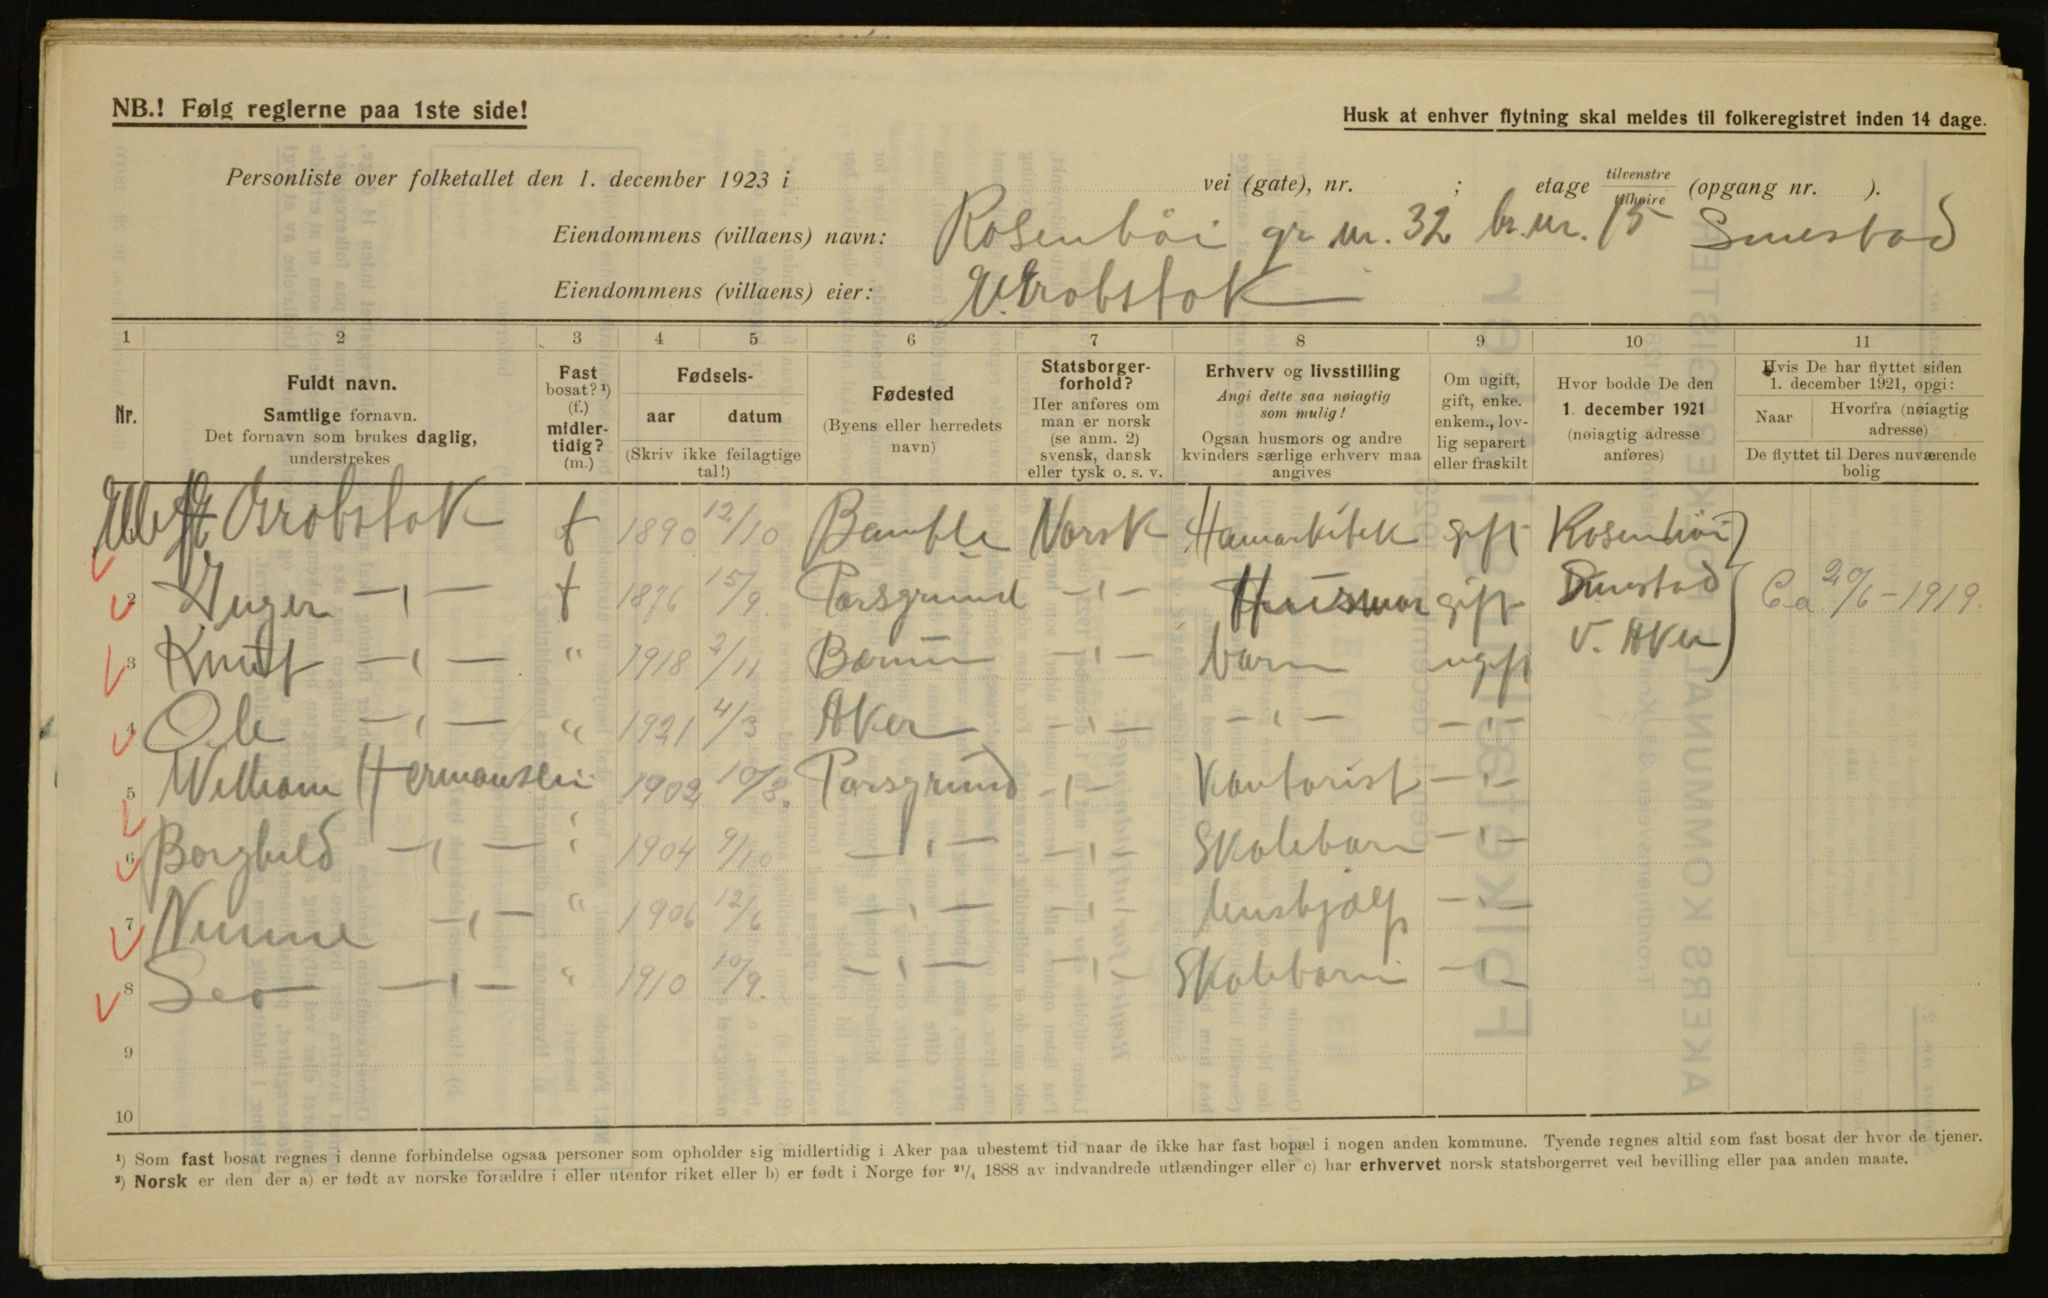 NB.! Følg reglerne paa 1ste side!
Husk at enhver flytning skal meldes til folkeregistret inden 14 dage.
Personliste over folketallet den 1. december 1923 i vei (gate), nr. ; etage tilvenstre tilhøire (opgang nr. ).
Eiendommens (villaens) navn: Rosenhöi gr nr. 32 br. nr. 15 Smestad
Eiendommens (villaens) eier:
1 2 3 4 5 6 7 8 9 10 11
Nr.
Fuldt navn.
Samtlige fornavn.
Det fornavn som brukes daglig,
understrekes
Fast
bosat? ¹)
(f.)
midler-
tidig?
(m.)
Fødsels-
aar datum
(Skriv ikke feilagtige
tal!)
Fødested
(Byens eller herredets
navn)
Statsborger-
forhold?
Her anføres om
man er norsk
(se anm. 2)
svensk, dansk
eller tysk o. s. v.
Erhverv og livsstilling
Angi dette saa nøiagtig
som mulig!
Ogsaa husmors og andre
kvinders særlige erhverv maa
angives
Om ugift,
gift, enke.
enkem., lov-
lig separert
eller fraskilt
Hvor bodde De den
1. december 1921
(nøiagtig adresse
anføres)
Hvis De har flyttet siden
1. december 1921, opgi:
Naar Hvorfra (nøiagtig
adresse)
De flyttet til Deres nuværende
bolig
f 1890 12/10 Bamble Norsk gift Rosenhöi
2 Inger —"— f 1876 15/9. Porsgrund —"— Husmor gift Smestad Ca 20/6 - 1919.
3 Knut —"— " 1918 2/11 Bærum —"— barn ugift V. Aker
4 Ole —"— " 1921 4/3 Aker —"— —"— —"—
5 William Hermansen 1902 10/8. Porsgrund —"— Kontorist —"—
6 Borghild —"— " 1904 9/10 —"— —"— Skolebarn —"—
7 —"— " 1906 12/6 —"— —"— hushjælp —"—
8 —"— " 1910 10/9. —"— —"— Skolebarn —"—
9
10
¹) Som fast bosat regnes i denne forbindelse ogsaa personer som opholder sig midlertidig i Aker paa ubestemt tid naar de ikke har fast bopæl i nogen anden kommune. Tyende regnes altid som fast bosat der hvor de tjener.
²) Norsk er den der a) er født av norske forældre i eller utenfor riket eller b) er født i Norge før ²¹/₄ 1888 av indvandrede utlændinger eller c) har erhvervet norsk statsborgerret ved bevilling eller paa anden maate.